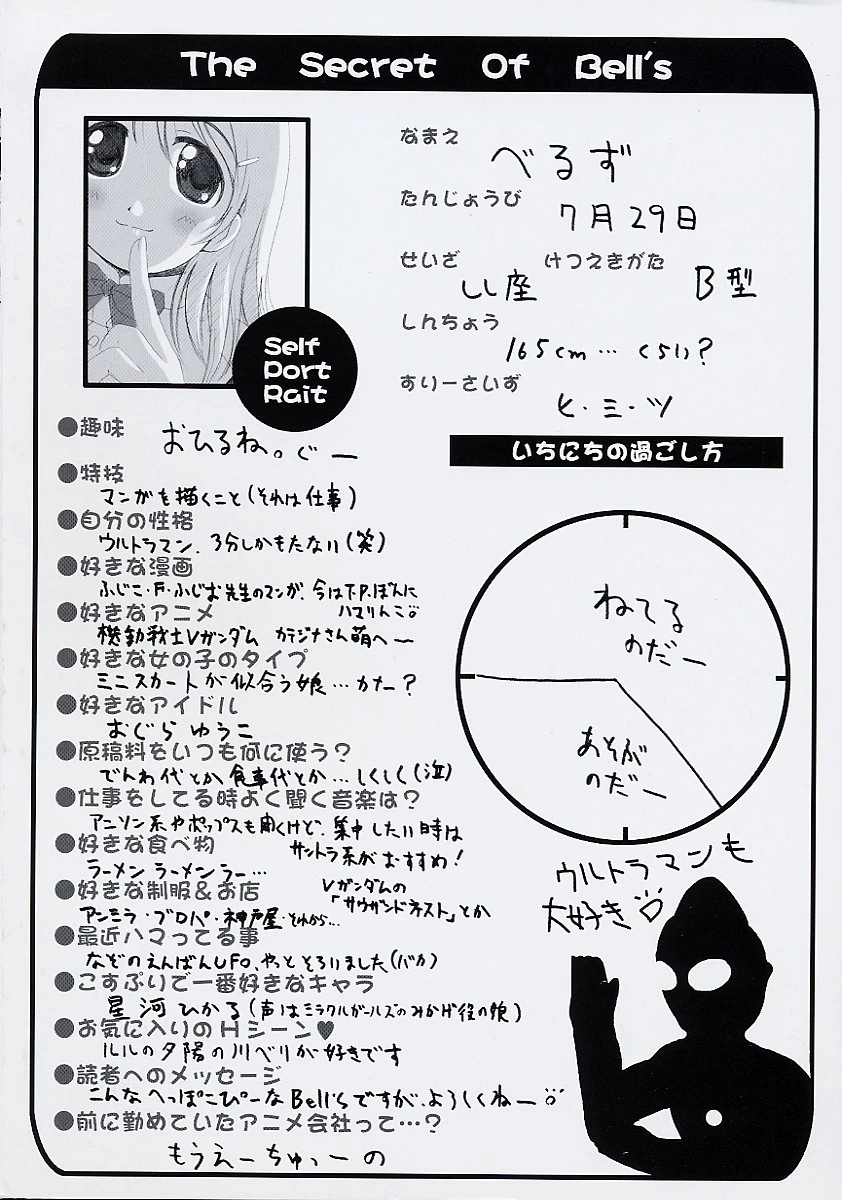 The Secret Of Bell's
なまえ
べるず
たんじょうび
7月29日
せいざ けつえきがた
しし座 B型
しんちょう
165cm…くらい?
すりーさいず
ヒ・ミ・ツ
Self
Port
Rait
●趣味
おひるね。ぐー
●特技
マンガを描くこと(それは仕事)
●自分の性格
ウルトラマン、3分しかもたない(笑)
●好きな漫画
ふじこ・F・ふじお先生のマンガ、今はT.P.ぼんに
ハマりんこ
●好きなアニメ
機動戦士Vガンダム カテジナさん萌へー
●好きな女の子のタイプ
ミニスカートが似合う娘…かな?
●好きなアイドル
おぐら ゆうこ
●原稿料をいつも何に使う?
でんわ代とか食事代とか…しくしく(泣)
●仕事をしてる時よく聞く音楽は?
アニソン系やポップスも聞くけど、集中したい時は
サントラ系がおすすめ!
Vガンダムの
「サウザンドネスト」とか
●好きな食べ物
ラーメン ラーメン ラー…
●好きな制服&お店
アンミラ・ブロパ・神戸屋・それから…
●最近ハマってる事
なぞのえんばんUFO、やっとそろいました(バカ)
●こすぷりで一番好きなキャラ
星河ひかる(声はミラクルガールズのみかげ役の娘)
●お気に入りのHシーン♥
ルルの夕陽の川べりが好きです
●読者へのメッセージ
こんなへっぽこぴーなBell'sですが、よろしくねー
●前に勤めていたアニメ会社って…?
もうえーちゅっーの
いちにちの過ごし方
ねてる
のだー
あそぶ
のだー
ウルトラマンも
大好き